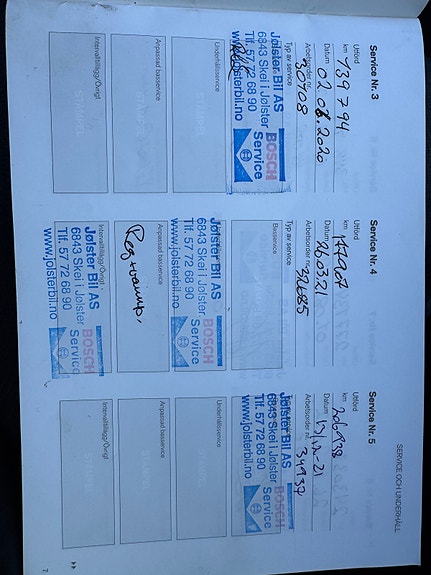 SERVICE OCH UNDERHÅLL
Service Nr. 3
Utförd
km 139794
Datum 02.08.2020
Arbetsorder nr. 30708
Typ av service
Jølster Bil AS
6843 Skei i Jølster
Tlf. 57 72 68 90
www.jolsterbil.no
BOSCH
Service
Underhållsservice
Anpassad basservice
Intervalltillägg/Övrigt
Service Nr. 4
Utförd
km
Datum 26.03.21
Arbetsorder nr. 32685
Typ av service
Basservice
Jølster Bil AS
6843 Skei i Jølster
Tlf. 57 72 68 90
www.jolsterbil.no
BOSCH
Service
Anpassad basservice
Intervalltillägg/Övrigt
Jølster Bil AS
6843 Skei i Jølster
Tlf. 57 72 68 90
www.jolsterbil.no
BOSCH
Service
Service Nr. 5
Utförd
km
Datum
Arbetsorder nr. 34937
Jølster Bil AS
6843 Skei i Jølster
Tlf. 57 72 68 90
www.jolsterbil.no
BOSCH
Service
Underhållsservice
Anpassad basservice
Intervalltillägg/Övrigt